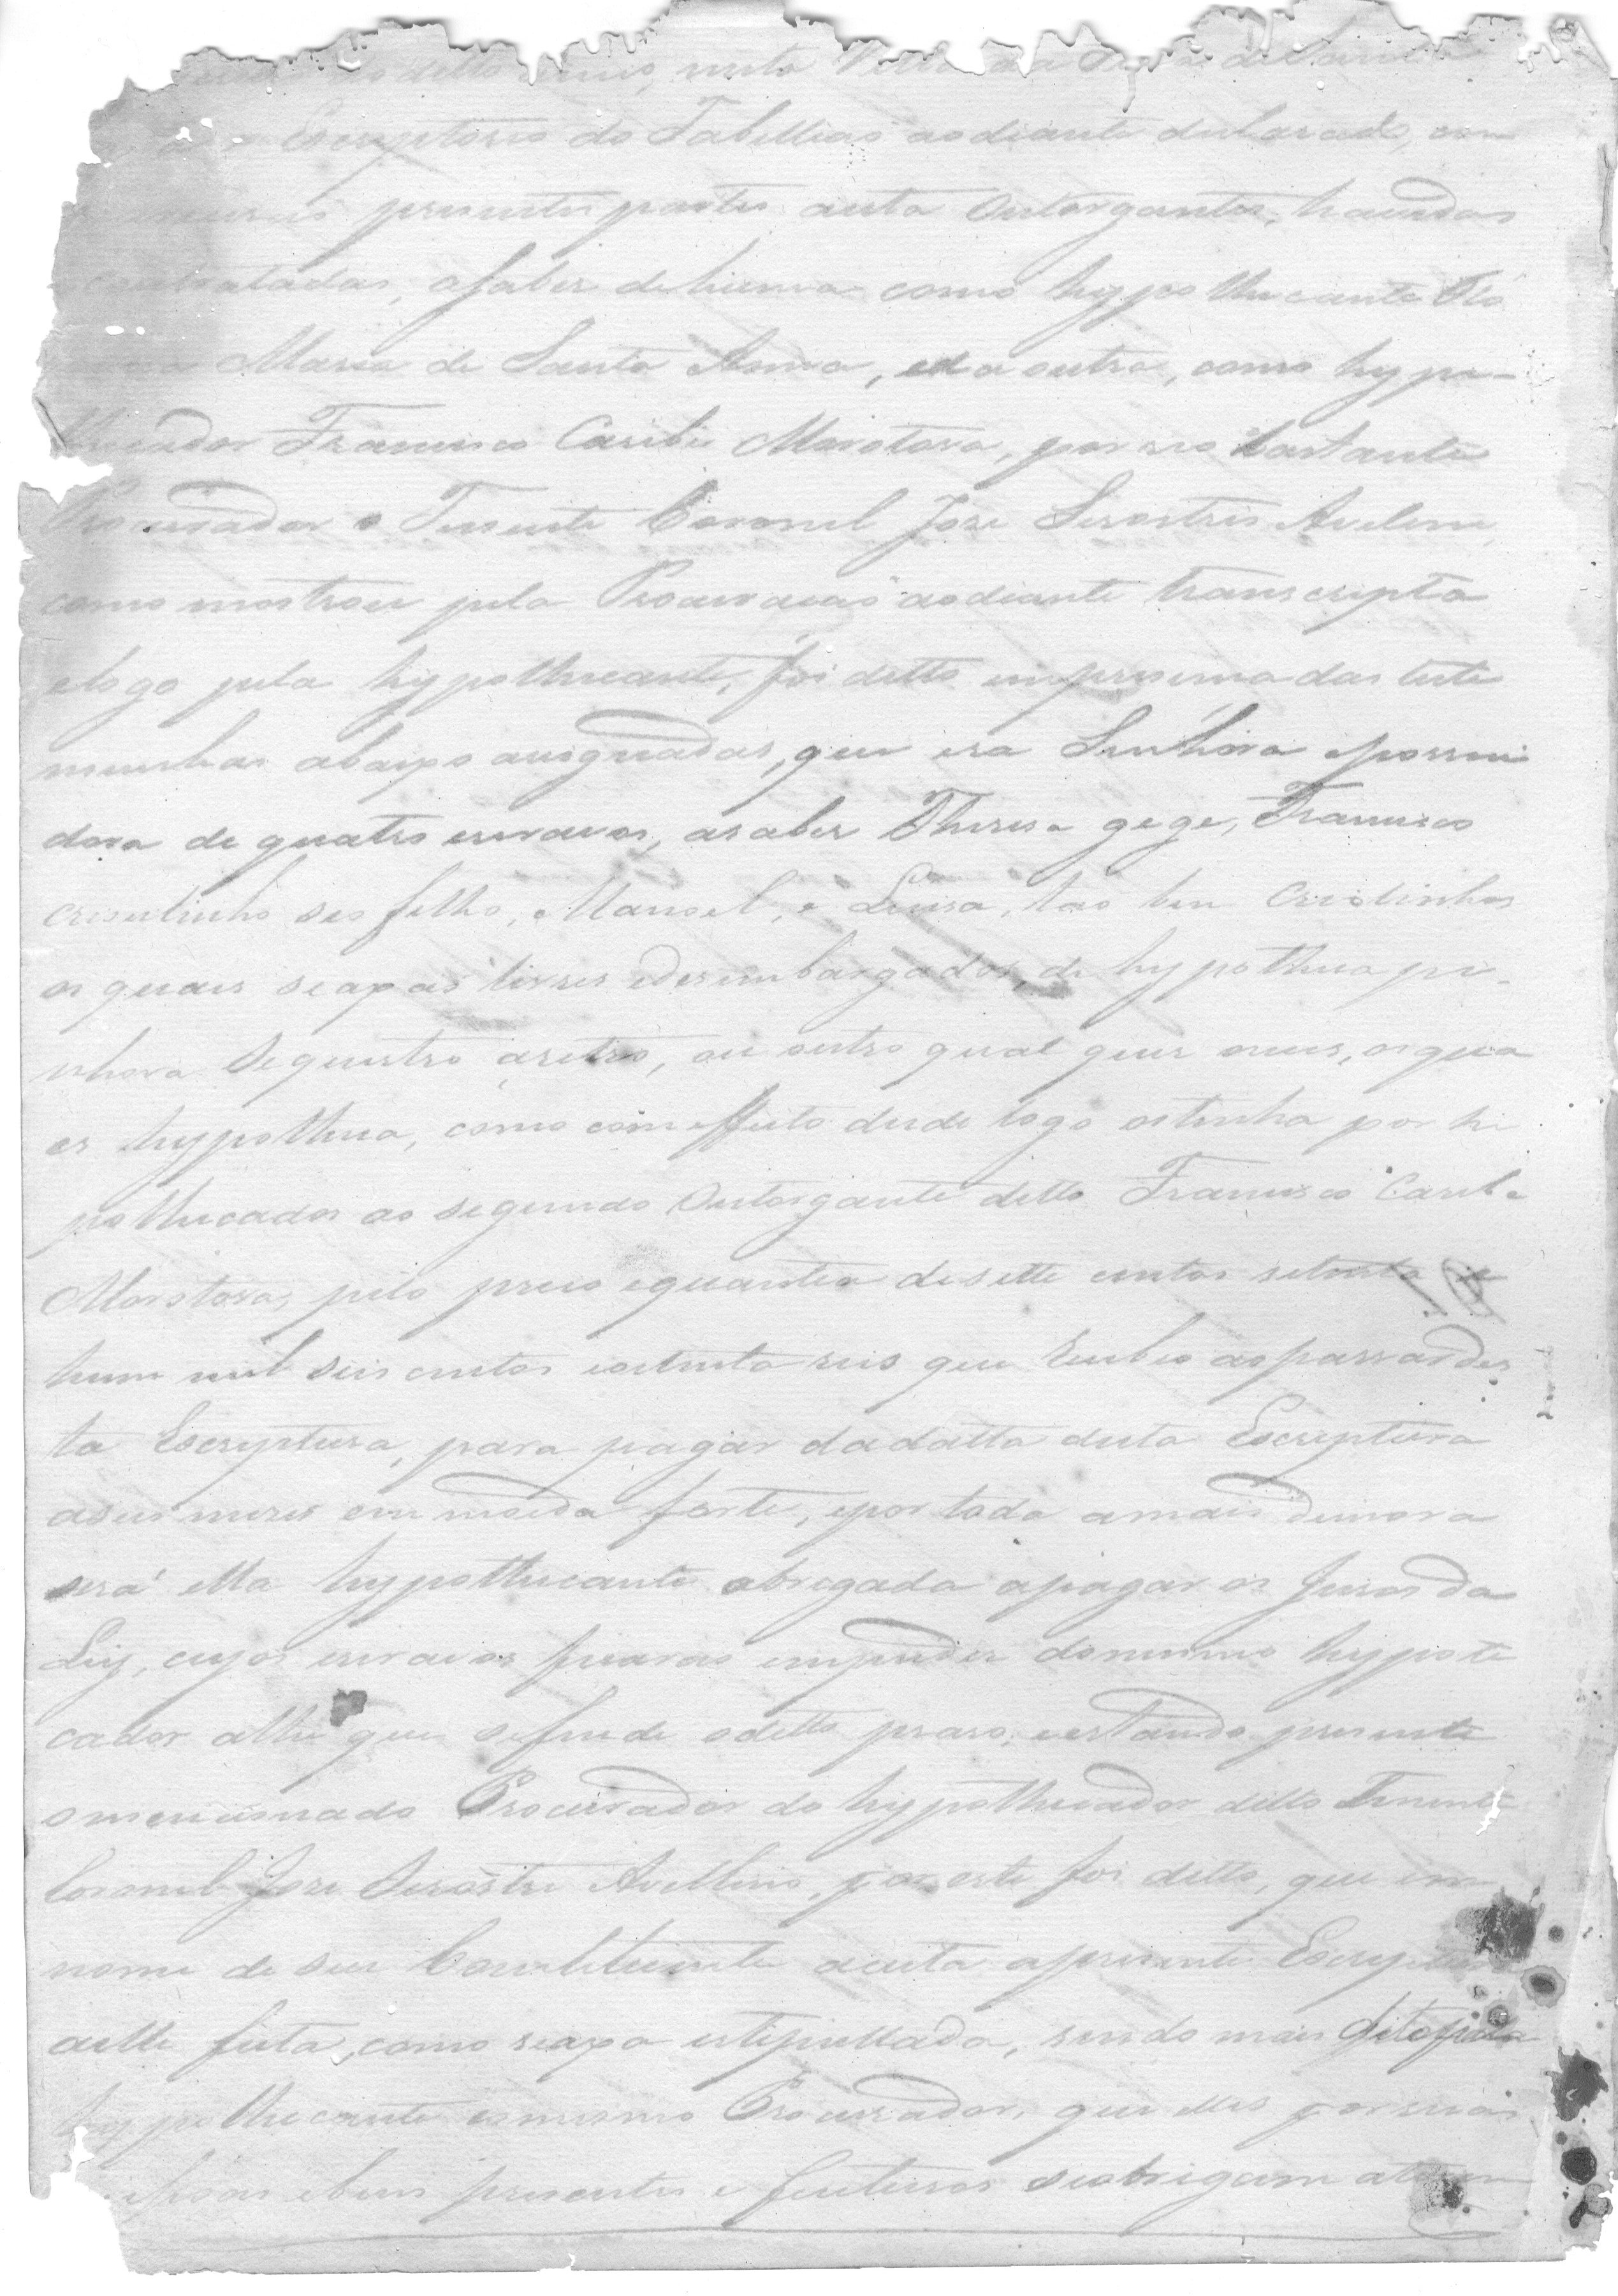 ditto nesta
Escriptorio do Tabelliaõ aodiante declarado, com
presentes partes desta Outorgantes, havidas
contratadas, asaber dehuma como hypothecante Flo
Maria de Santa Anna, eda outra, como hypo-
thecador Francisco Caribe Morotova, por seo bastante
Procurador o Tenente Coronel Jose Sesostris Avelino,
como mostrou pela Procuraçaõ aodiante transcripta
elogo pela hypothecante, foi ditto em presensa das teste
munhas abaixo assignadas, que era Senhóra epossui
dora de quatro escravos, asaber Theresa gege, Francisco
creoulinho seo filho, Manoel, e Luisa, taõ bem Criolinhos
os quais seaxaõ livres edesembargados, de hypotheca pe-
nhora sequestro aresto, ou outro qual quer onus, os qua
es hypotheca, como com effeito desde logo ostinha por hi
pothecados ao segundo Outorgante ditto Francisco Caribe
Morotova, pelo preso equantia desette centos setenta e
hum mil seis centos eoitenta reis que recebeo ao passar des
ta Escryptura, para pagar dadatta desta Escriptura
aseis meses em moeda forte, epor toda amais demora
será ella hypothecante obregada apagar os Juros da
Ley, cujos escravos ficaraõ empoder domesmo hypote
cador athe que sefinde oditto praso; eestando presente
omencionado Procurador do hypothecador ditto Tenente
Coronel Jose Sesóstre Avellino, por este foi ditto, que em
nome de seu Constituinte aceita apresente Escryptura
aelle feita, como seaxa estipullada, sendo mais dito pela
hypothecante eomesmo Procurador, que elles por suas
ebens presentes e futuros seobrigam